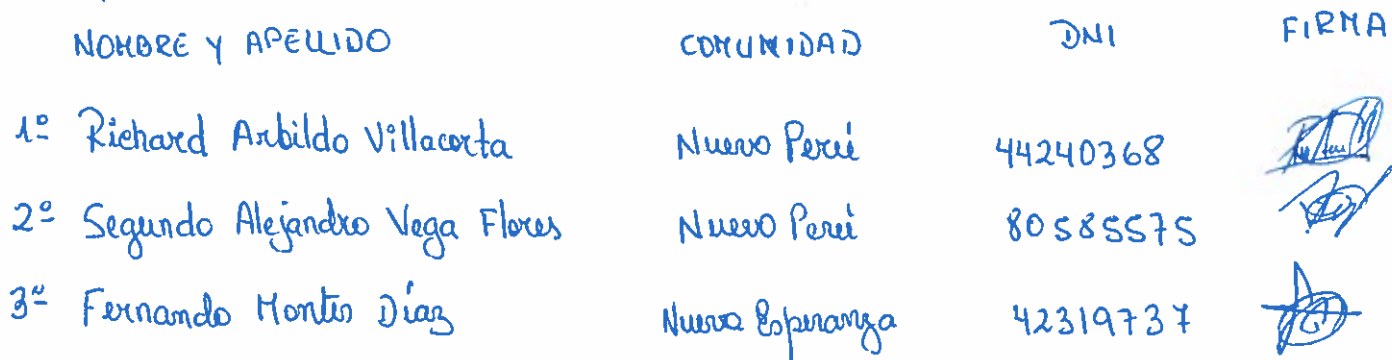 NOMBRE Y APELLIDO COMUNIDAD DNI FIRMA
1º Richard Arbildo Villacorta Nuevo Perú 44240368
2º Segundo Alejandro Vega Flores Nuevo Perú 80585575
3º Fernando Montes Díaz Nueva Esperanza 42319737